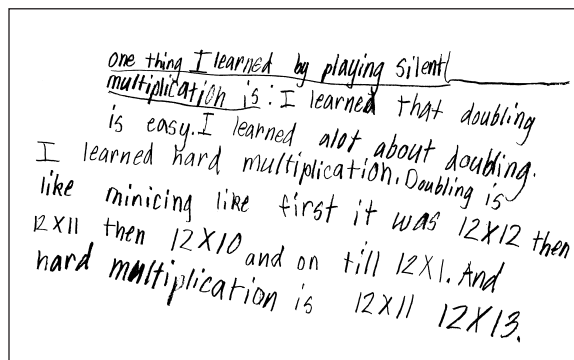 one thing I learned by playing silent
multiplication is: I learned that doubling
is easy. I learned alot about doubling.
I learned hard multiplication. Doubling is
like minicing like first it was 12X12 then
12X11 then 12X10 and on till 12X1. And
hard multiplication is 12X11 12X13.